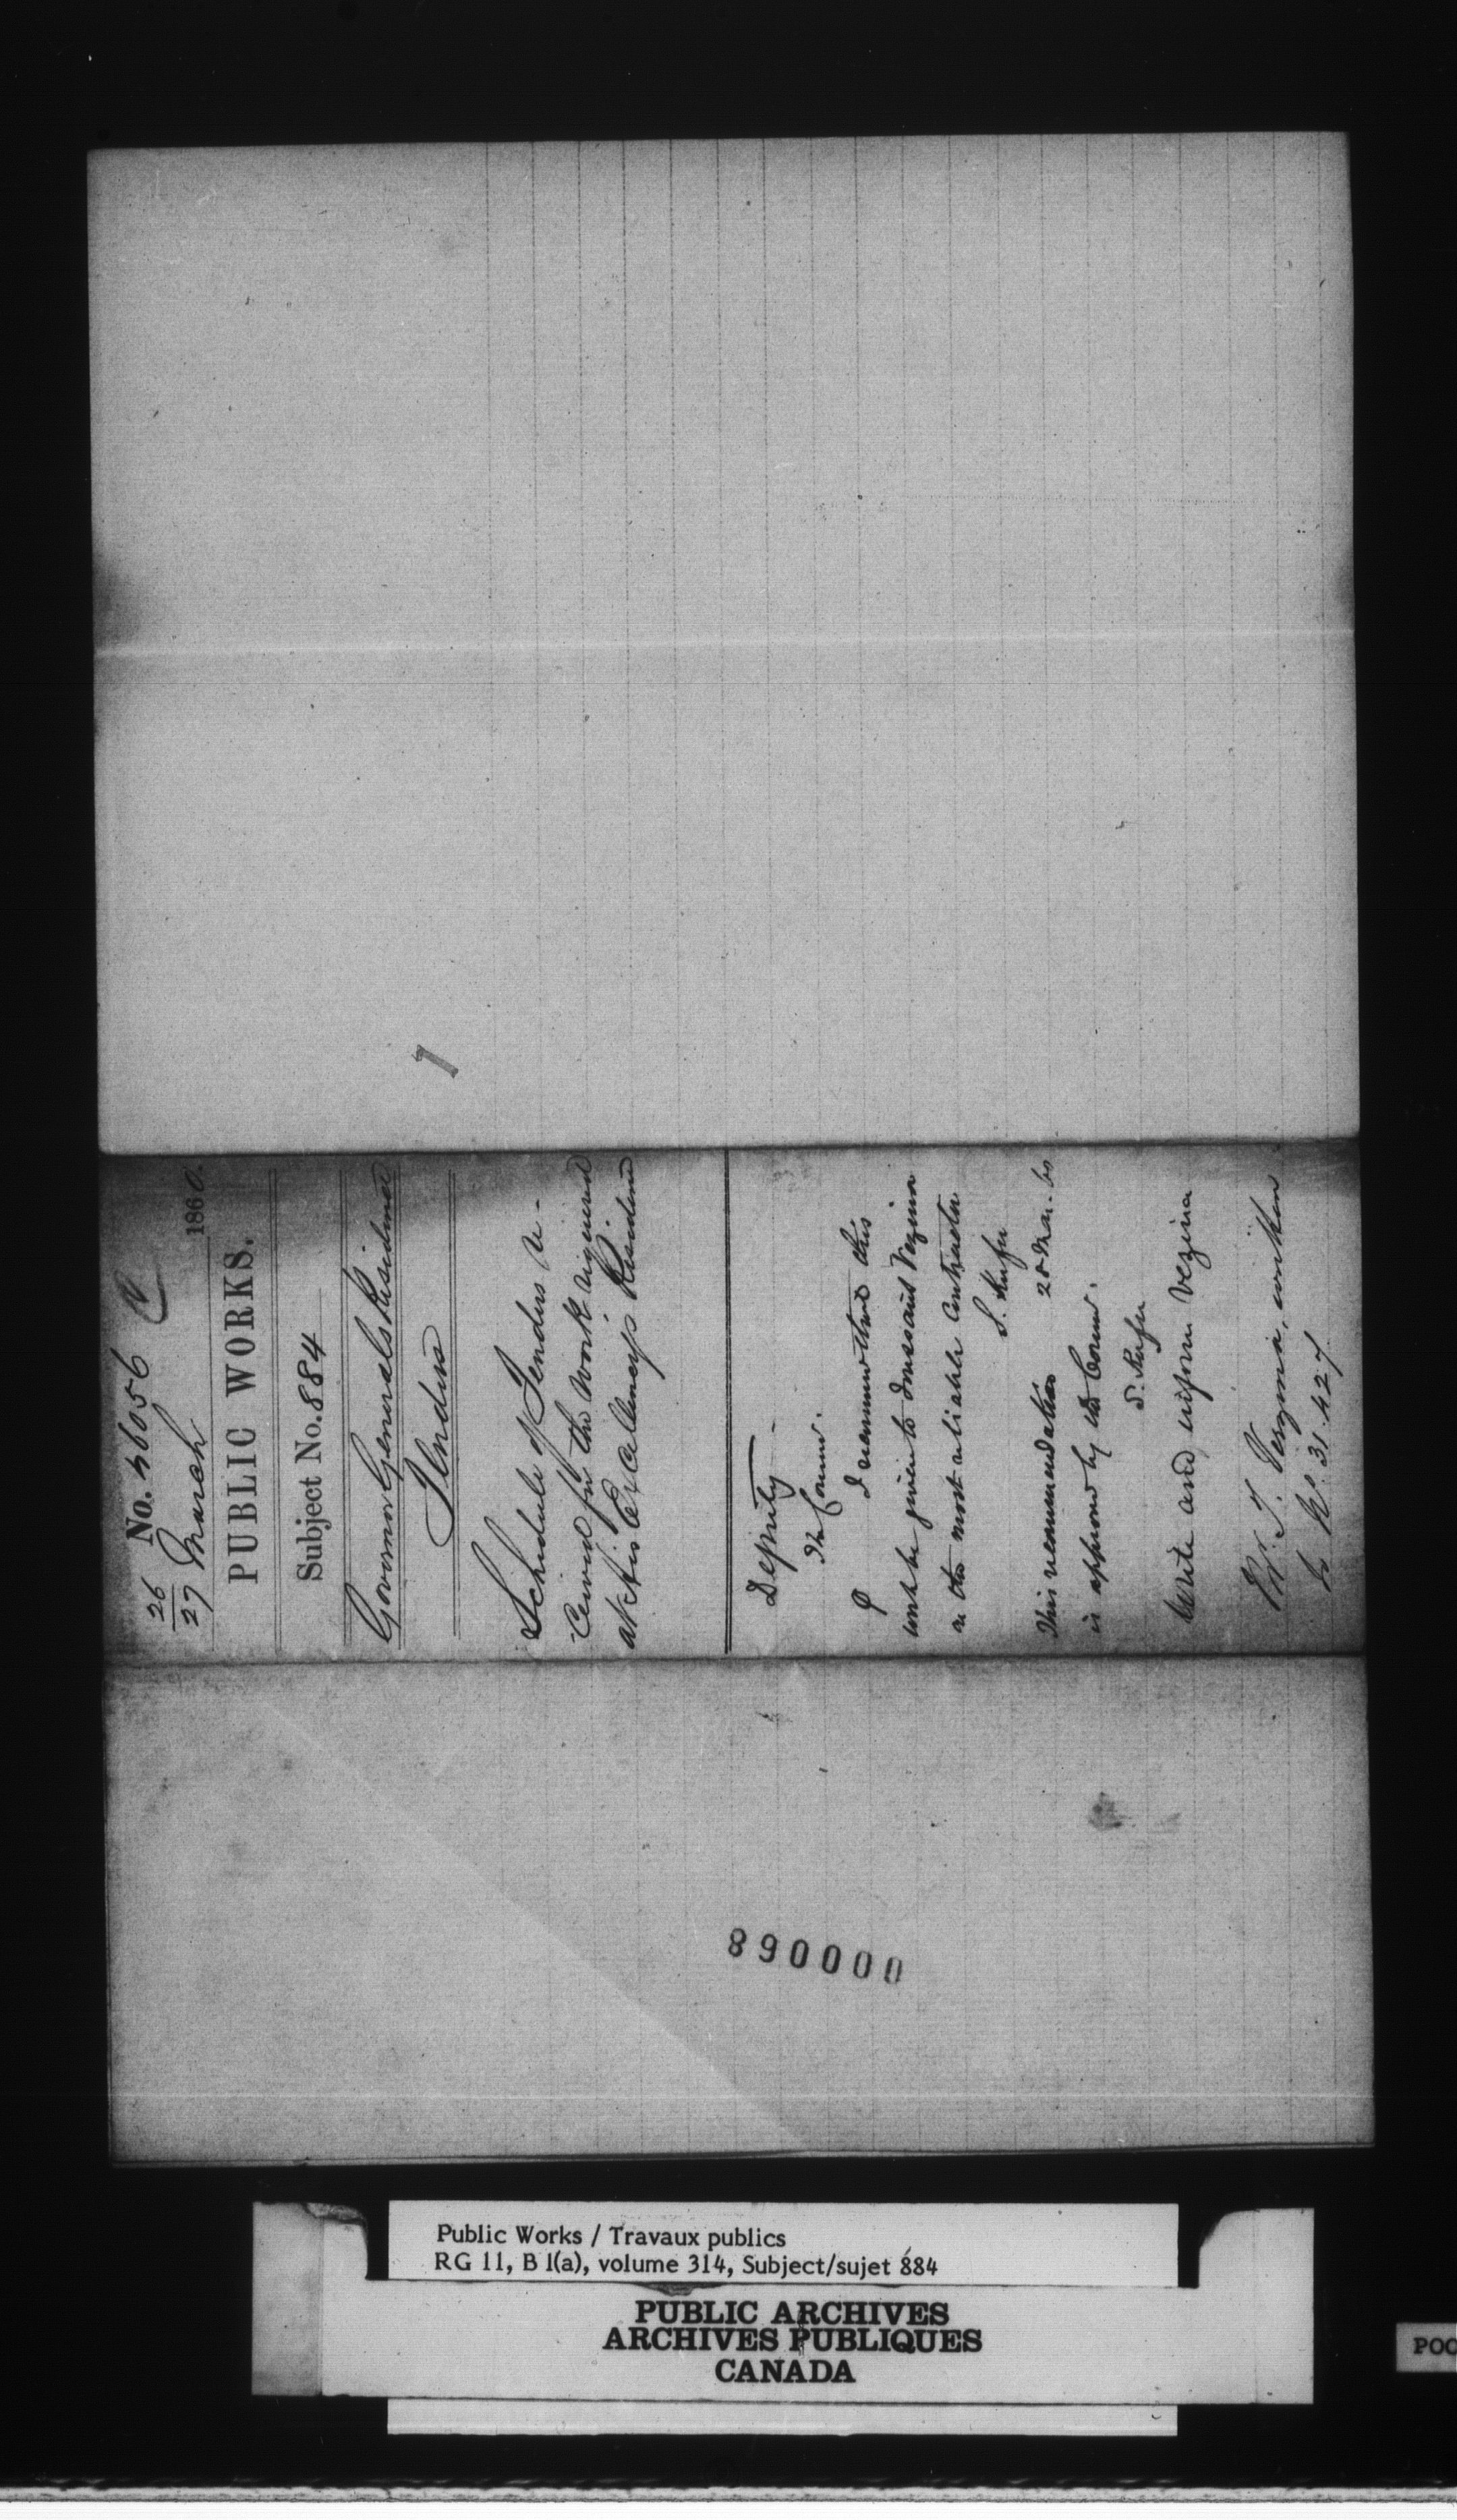 No. 46056
26
27 March 1860.
PUBLIC WORKS.
Subject No. 884
Governor Generals Residence
Tenders
Schedule of Tenders re-
ceived for the work required
at His Excellency's Residence
Deputy
The Comnr.
I recommend this
work be given to Toussaint Vezina
as the most reliable Contractor
28 Mar. 60
This recommendation
is approved by the Comnr.
Write and inform Vezina
Mr. T. Vezina, written
No. 31.427
000068
Public Works / Travaux publics
RG 11, B 1(a), volume 314, Subject/sujet 884
PUBLIC ARCHIVES
ARCHIVES PUBLIQUES
CANADA
POO